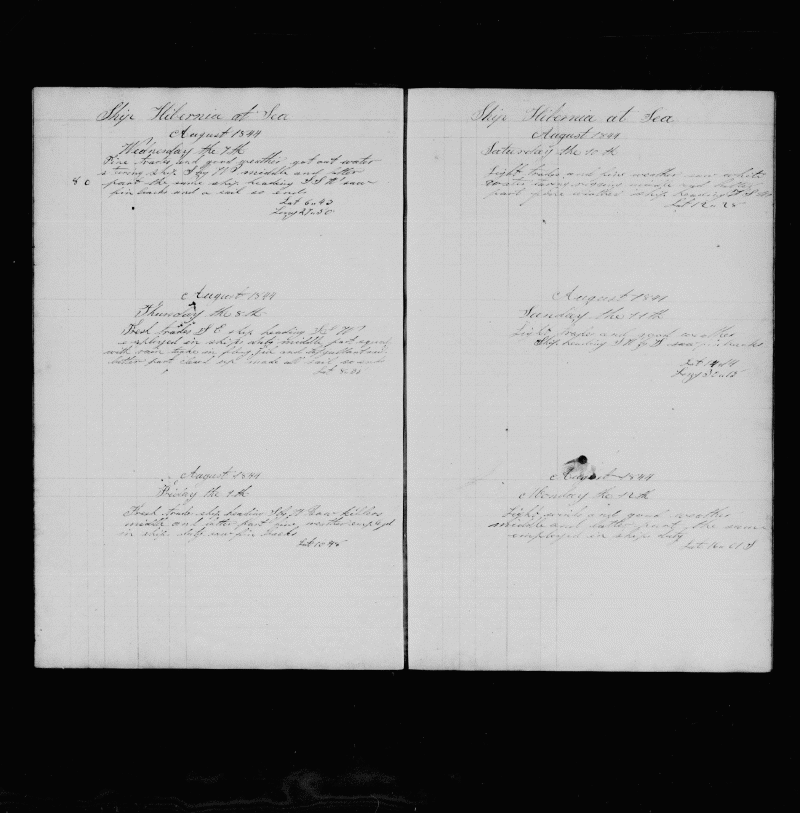 Ship Hibernia at Sea
August 1844
Wednesday the 7th
Fine trades and good weather got out water
steering ship S by W middle and latter
part the same ship heading S S W saw
fin backs and a sail so ends
Lat 6..43
Long 27..50
August 1844
Thursday the 8th
Fresh trades S E ship heading
employed in ships duty middle part
with rain
latter part made all sail so ends
Lat 8..
August 1844
Friday the 9th
Fresh trades ship heading S by W saw killers
middle and latter part fine weather employed
in ships duty saw fin backs
Lat 10..45
Ship Hibernia at Sea
August 1844
Saturday the 10th
Light trades and fine weather saw white
water and latter
part fine weather ship heading
Lat 12..25
August 1844
Sunday the 11th
Light trades and good weather
Ship heading saw fin backs
Lat 14..
Long
August 1844
Monday the 12th
Light winds and good weather
middle and latter part the same
employed in ships duty
Lat 16..01 S